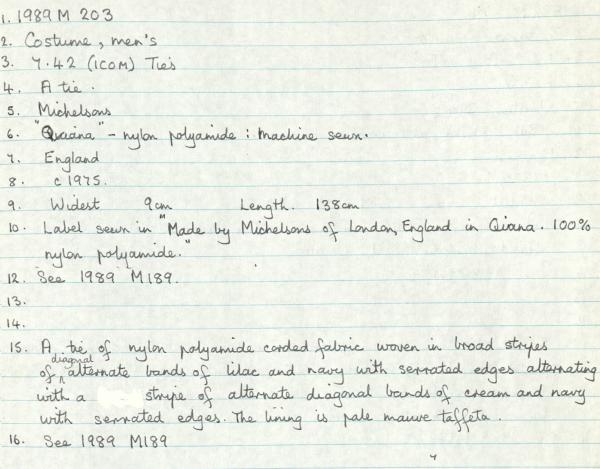 1. 1989 M 203
2. Costume, men's
3. 7.42 (ICOM) Ties
4. A tie.
5. Michelsons
6. "Quiana" - nylon polyamide : machine sewn.
7. England
8. c 1975.
9. Widest 9cm Length. 138cm
10. Label sewn in "Made by Michelsons of London, England in Qiana. 100%
nylon polyamide."
12. See 1989 M189.
13.
14.
15. A tie of nylon polyamide corded fabric woven in broad stripes
of diagonal alternate bands of lilac and navy with serrated edges alternating
with a stripe of alternate diagonal bands of cream and navy
with serrated edges. The lining is pale mauve taffeta.
16. See 1989 M189